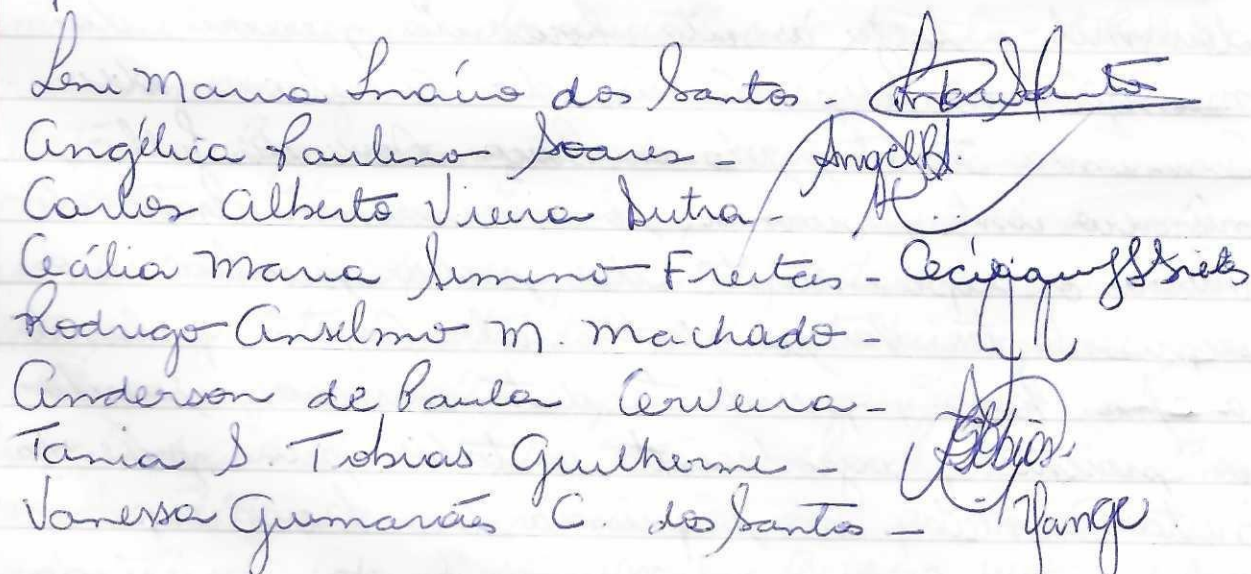 Leni Maria Inácio dos Santos -
Angélica Paulino Soares - Angel
Carlos Alberto Vieira Dutra -
Cecília Maria Simino Freitas - Cecília
Rodrigo Anselmo M. Machado -
Anderson de Paula Cerveira -
Tania S. Tobias Guilherme - Tobias
Vanessa Guimarães C dos Santos - Vange